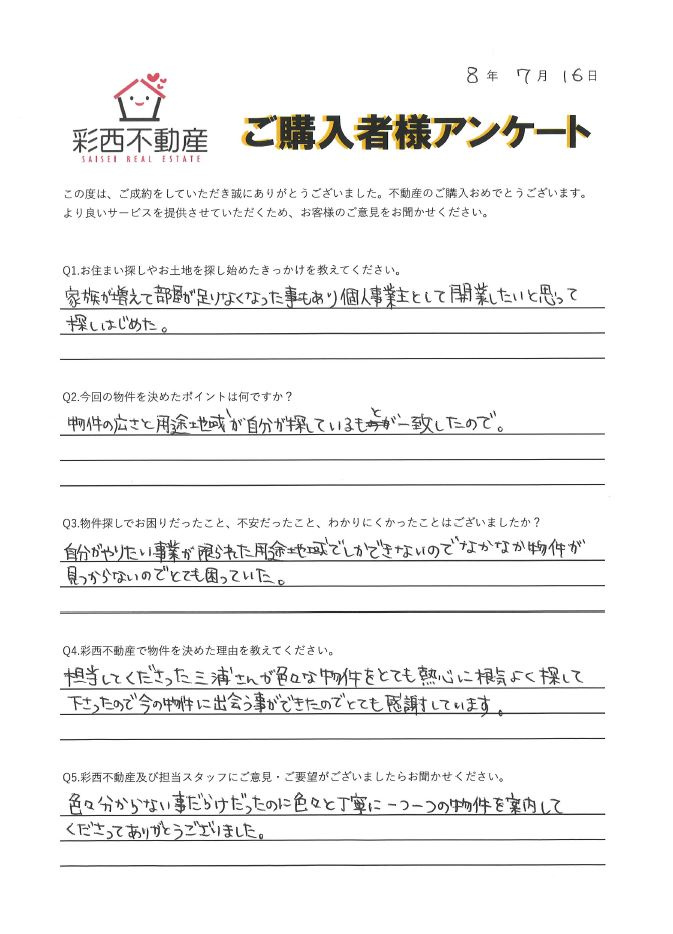 8年 7月 16日
彩西不動産
SAISEI REAL ESTATE
ご購入者様アンケート
この度は、ご成約をしていただき誠にありがとうございました。不動産のご購入おめでとうございます。
より良いサービスを提供させていただくため、お客様のご意見をお聞かせください。
Q1.お住まい探しやお土地を探し始めたきっかけを教えてください。
家族が増えて部屋が足りなくなった事もあり個人事業主として開業したいと思って
探しはじめた。
Q2.今回の物件を決めたポイントは何ですか？
物件の広さと用途地域が自分が探しているものと一致したので。
Q3.物件探しでお困りだったこと、不安だったこと、わかりにくかったことはございましたか？
自分がやりたい事業が限られた用途地域でしかできないのでなかなか物件が
見つからないのでとても困っていた。
Q4.彩西不動産で物件を決めた理由を教えてください。
担当してくださった三浦さんが色々な物件をとても熱心に根気よく探して
下さったので今の物件に出会う事ができたのでとても感謝しています。
Q5.彩西不動産及び担当スタッフにご意見・ご要望がございましたらお聞かせください。
色々分からない事だらけだったのに色々と丁寧に一つ一つの物件を案内して
くださってありがとうございました。